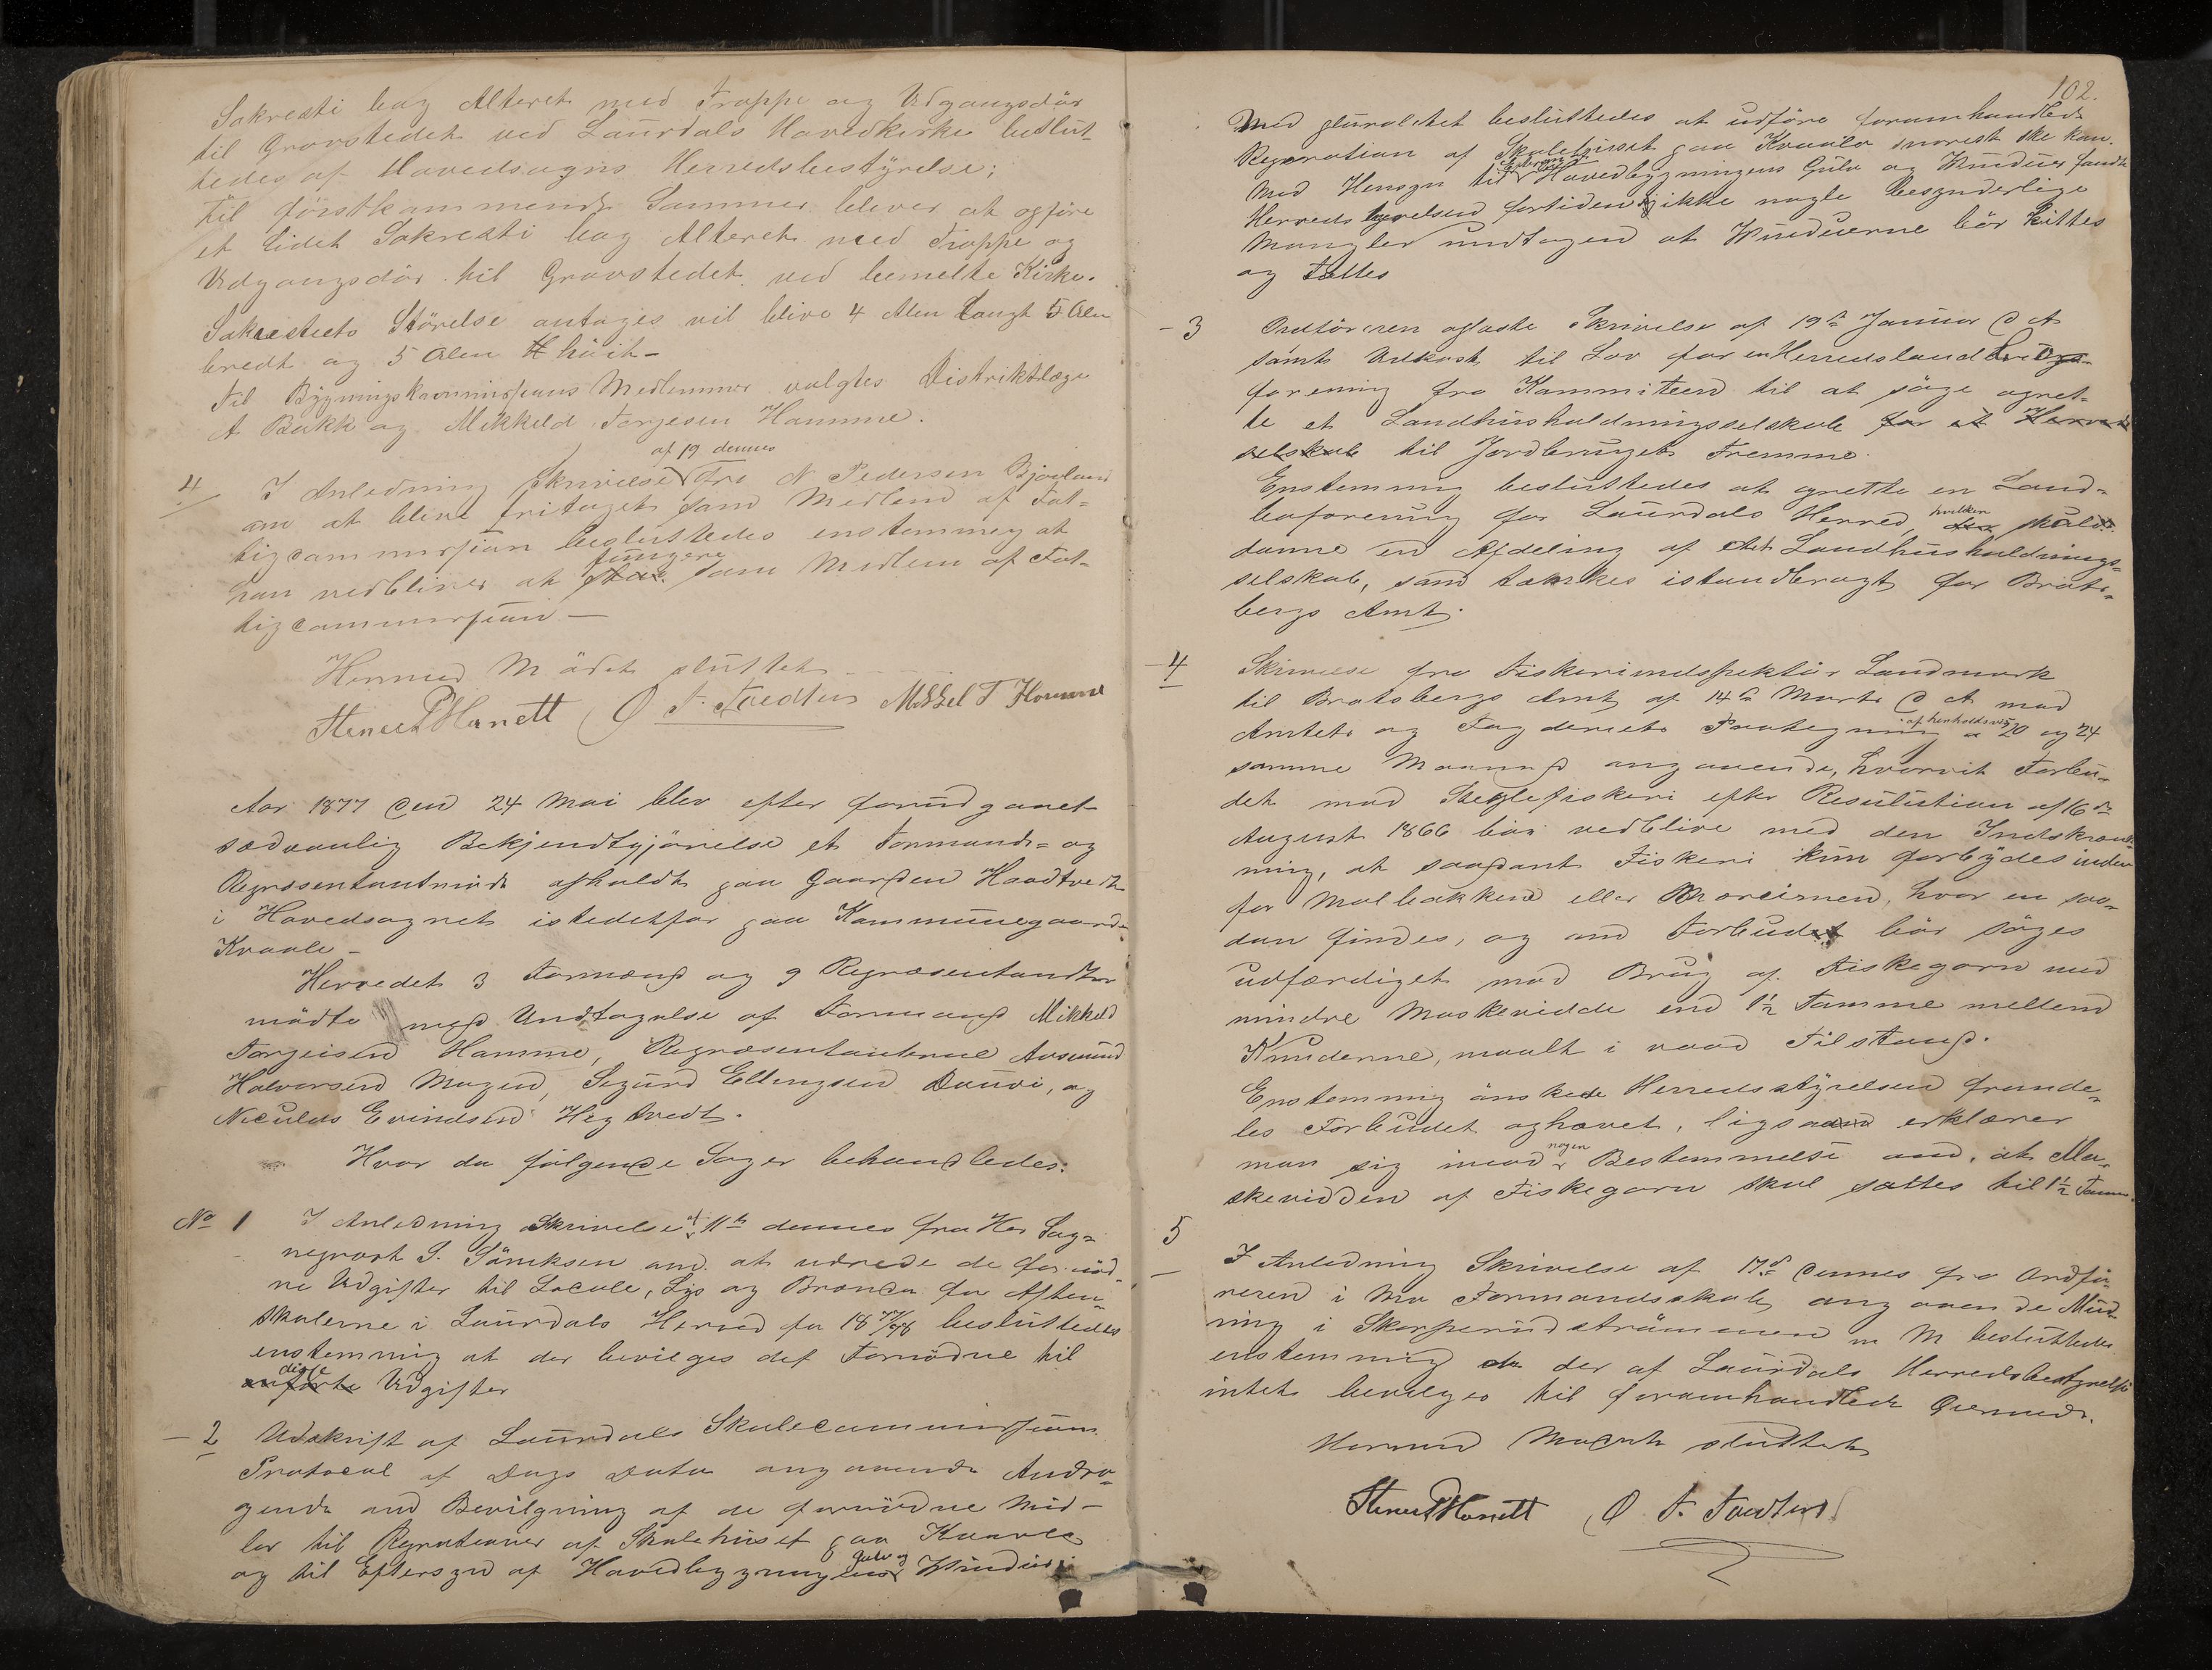 Sakresti bag Alteret med Trappe og Udgangsdör
til Gravstedet ved Laurdals Hovedkirke beslut-
tedes af Hovedsogns Herredsbestÿrelse;
til förstkommende Sommer bliver at opföre
et lidet Sakresti bag Alteret med Trappe og
Udgangsdör til Gravstedet ved bemelte Kirke.
Sakrestiets Störelse antages vil blive 4 Alen Langt 5 Alen
bredt og 5 Alen höit -
Til Bÿgningskommissions Medlemmer valgtes Distriktslæge
A Bakk og Mikkeld Torjesen Homme.
4/ I Anledning Skrivelse af 19 dennes fra N Pedersen Bjaaland
om at blive fritaget som Medlem af Fat-
tigcommission besluttedes enstemmig at
han vedbliver at fungere som Medlem af Fat-
tigcommission -
Hermed Mödet sluttet
Stener Hanett O T Mikkel T Homme
Aar 1877 den 24 Mai blev efter forudganet
sædvanlig Bekjendtgjörelse et Formands- og
Repræsentantmöde afholdt paa Gaarden Haadtvedt
i Hovedsognet istedetfor paa Kommunegaarde
Kraale -
Herredets 3 Formænd og 9 Repræsentandter
mödte med Undtagelse af Formand Mikkeld
Torgeisen Homme, Repræsentanterne Aasmund
Halvorsen Mogen, Sigurd Ellingsen Dauvi, og
Niculus Evindsen Hegtvedt.
Hvor da fölgende Sager behandledes:
No 1 I Anledning Skrivelse af 11te dennes fra Her Sog-
neprest S. Sörensen om at udrede de fornöd-
ne Udgifter til Locale, Lys og Brænde for Aften-
skolerne i Laurdals Herred for 1877/78 besluttedes
enstemmig at der bevilges det Fornödne til
disse Udgifter
- 2 Udskrift af Laurdals Skolecommissions
Protocol af Dags Dato angaaende Andra-
gende om Bevilgning af de fornödne Mid-
ler til Reprationer af Skolehuset paa Kraale
og til Eftersyn af Hovedbygningens Gulv og Winduer
102.
Med pluralitet besluttedes at udföre foromhandlede
Reparation af Skolehuset paa Kraale snarest ske kan.
Med Hensyn til Hovedbygningens Gulv og Winduer fandt
Herredstyrelsen fortiden ikke nogle besynderlige
Mangler undtagen at Winduerne bör kittes
og tættes
- 3 Ordföreren oplæste Skrivelse af 19de Januar d A
samt Udkast til Lov for en Herredslandbrugs-
forening fra Kommiteen til at söge opret-
te et Landhusholdningsselskab for et Herreds
selskab til Jordbrugets Fremme.
Enstemmig besluttedes at oprette en Land-
boforening for Laurdals Herred, hvilken skulde
danne en Afdeling af det Landhusholdnings-
selskab, som tænkes istandbragt for Brats-
bergs Amt.
- 4 Skrivelse fra Fiskeriinspektör Landmark
til Bratsbergs Amt af 14de Marts d A med
Amtets og Fogderiets Paategning af henholdsvis 20 og 24
samme Maaned angaaende, hvorvit Forbu-
det mod Steglefiskeri efter Resulution af 6te
August 1866 bör vedblive med den Indskrænk-
ning, at saadant Fiskeri kun forbÿdes inden
for Malbakken eller Mareimen, hvor en saa-
dan findes, og om Forbudet bör söges
udfærdiget mod Brug af Fiskegarn med
mindre Maskevidde end 1½ Tomme mellem
Knuderne, maalt i vaad Tilstand.
Enstemmig önskede Herredsstÿrelsen fremde-
les Forbudet ophævet, ligsom erklærer
man sig imod nogen Bestemmelse om, at Ma-
skevidden af Fiskegarn skal sættes til 1½ Tomme.
5 I Anledning Skrivelse af 17de dennes fra Ordfö-
reren i Mo Formandsskab, angaaende Mud-
ring i Skarperudströmmen m M besluttedes
enstemmig at der af Laurdals Herredsbestyrelse
intet bevilges til foromhandlede Öiemed.
Hermed Mödet sluttet
Stener Hanett O T